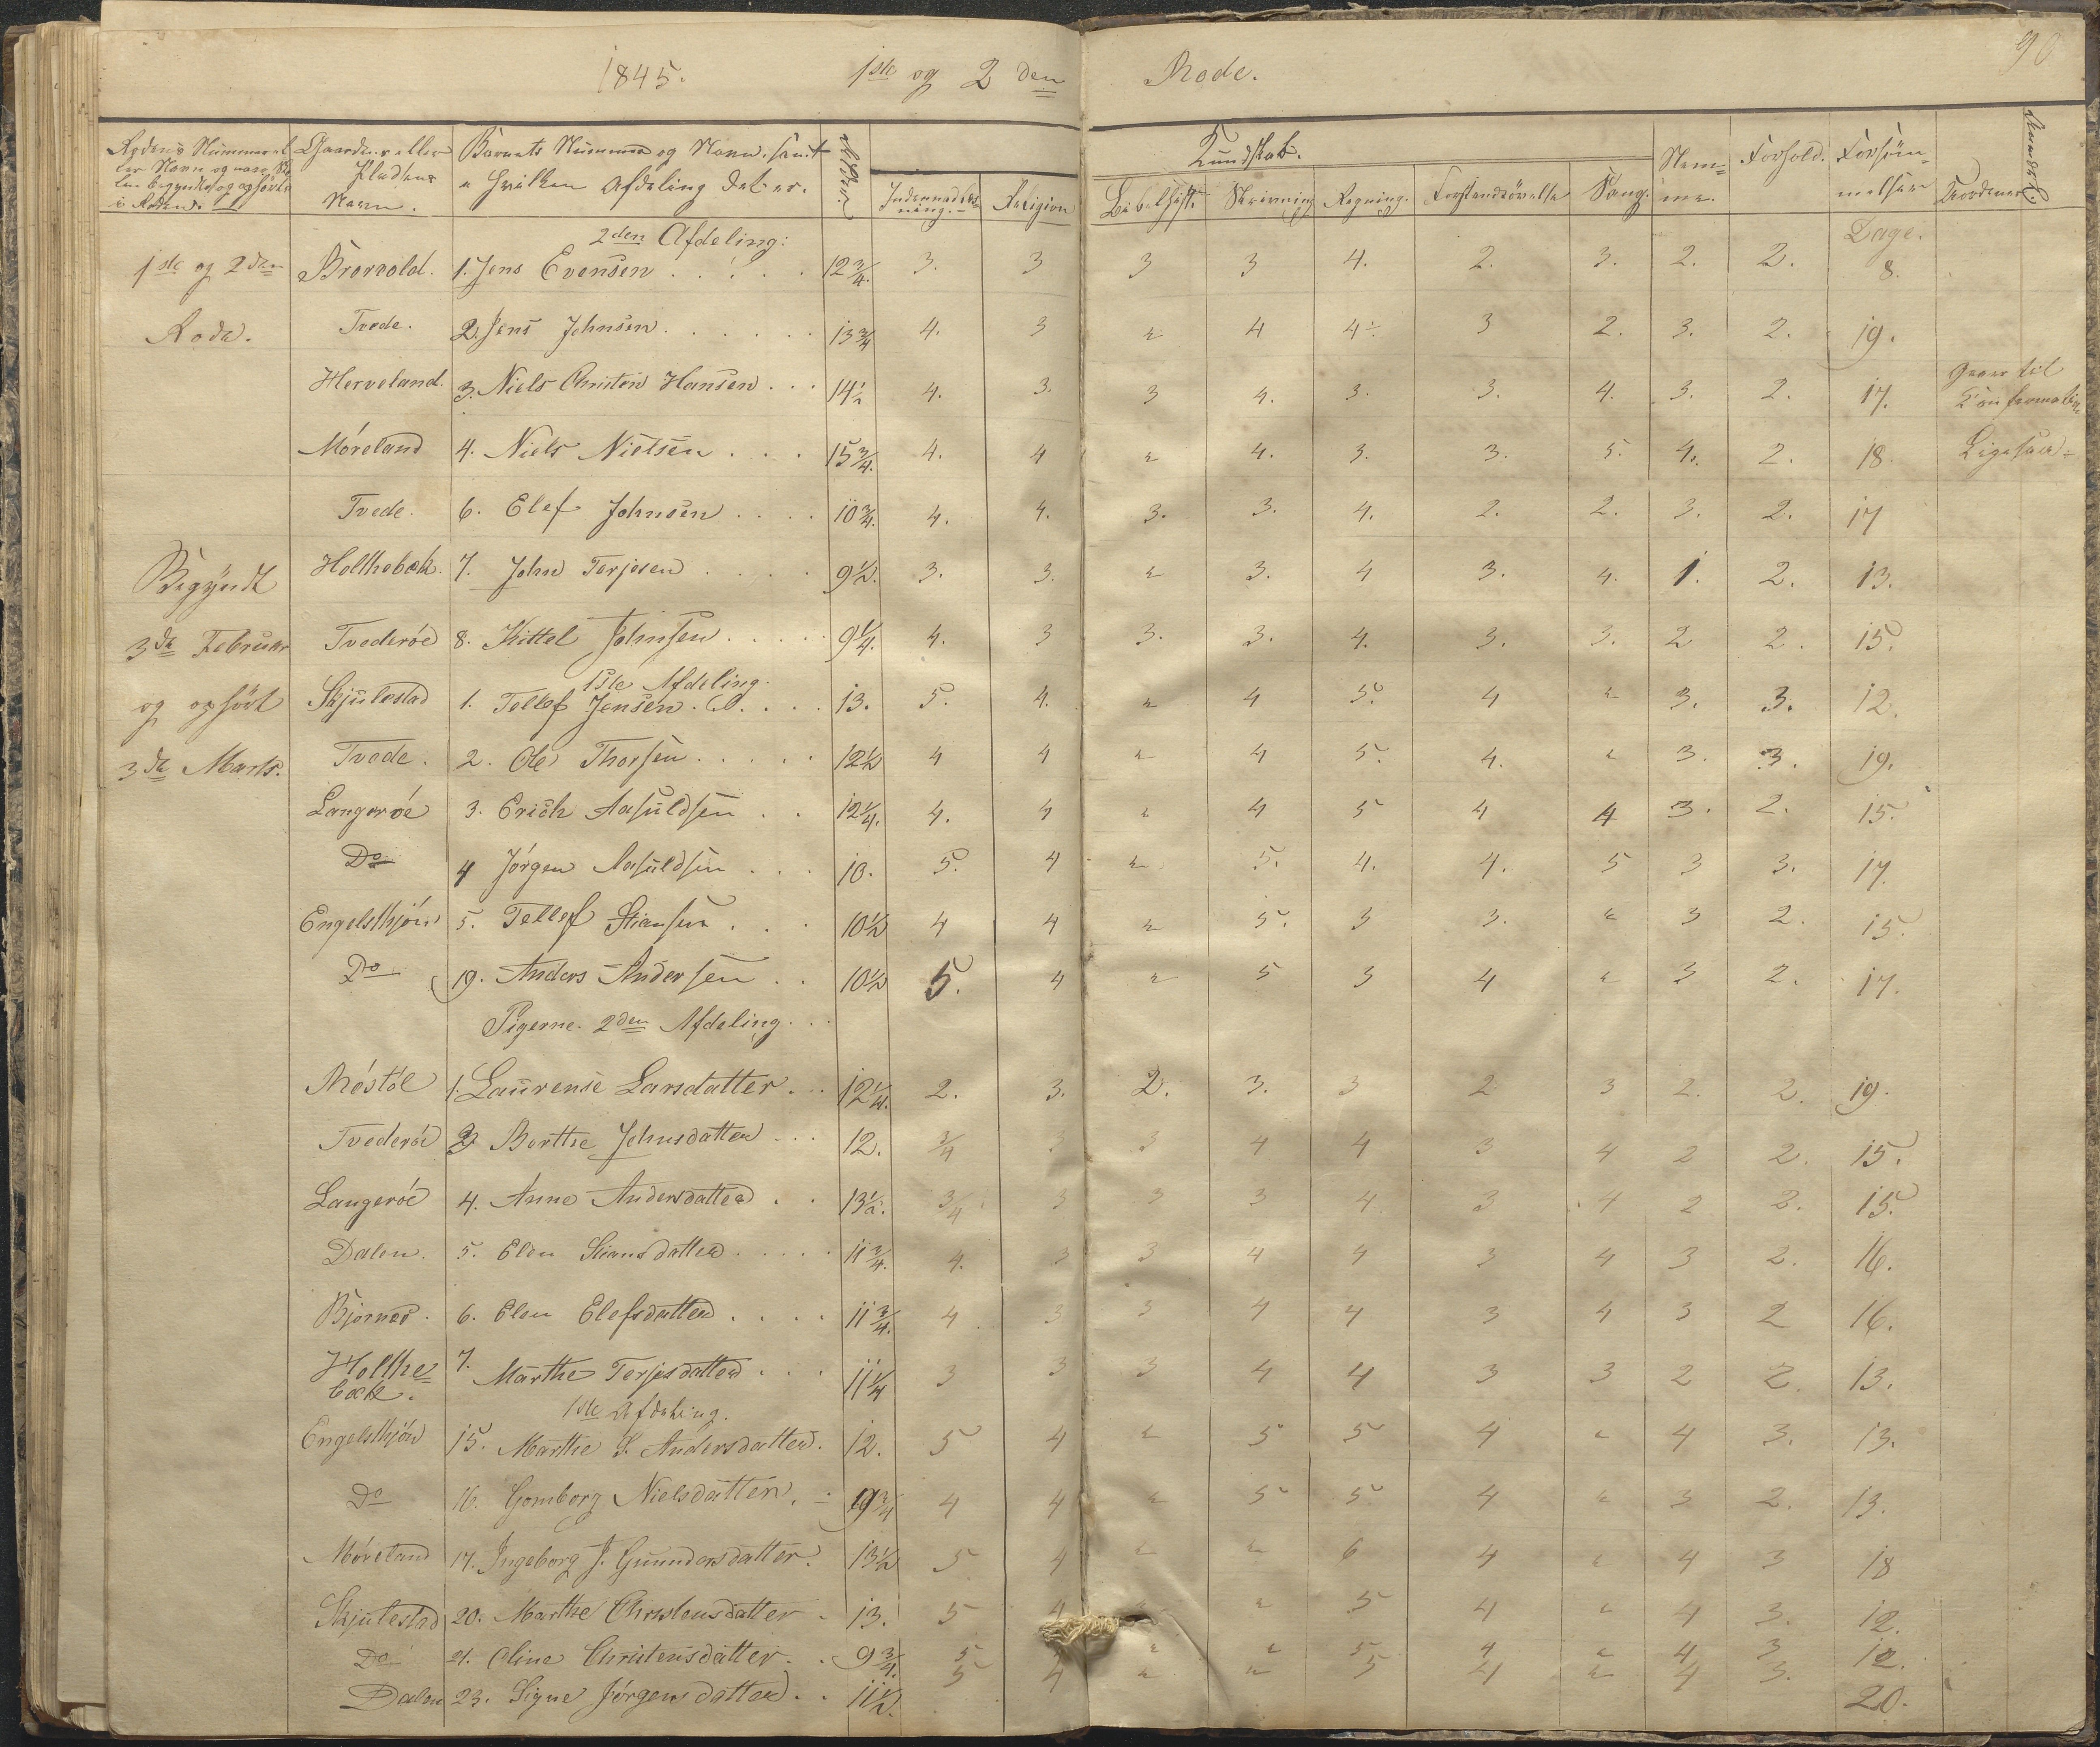 90
1845. 1ste og 2den Rode.
Rodens Nummer el Gaardens eller Barnets Nummer og Navn, samt Alder. Kundskab. Nem= Forhold. Forsøm=
ler Navn og naar Sko Pladsens i hvilken Afdeling det er. Indenadslæs= Religion Bibelhist. Skrivning Regning. Forstandsøvelse Sang. me. melser
len begyndte og ophørte Navn. ning.
i Roden.
2den Afdeling: Dage.
1ste og 2den Brorvold. 1. Jens Evensen 12 3/4. 3. 3 3 3 4. 2. 3. 2. 2. 8.
Rode. Tvede. 2. Jens Johnsen 13 3/4 4. 3 " 4 4÷ 3 2. 3. 2. 19.
Herveland. 3. Niels Christen Hansen 14 1/2 4. 3. 3 4. 3. 3. 4. 3. 2. 17. Gaaer til Confirmation
Móreland 4. Niels Nielsen 15 3/4. 4. 4 " 4. 3. 3. 5. 4. 2. 18. Ligesaa
Tvede. 6. Elef Johnsen 10 3/4. 4. 4. 3. 3. 4. 2. 2. 3. 2. 17
Begyndt Holthebæk. 7. John Terjesen 9 1/2. 3. 3. " 3. 4 3. 4. 1. 2. 13.
3de Februar Tvederóe 8. Kittel Johnsen 9 1/4. 4. 3 3. 3. 4. 3. 3. 2 2. 15.
1ste Afdeling.
og ophört Skjulestad 1. Tellef Jensen 13. 5. 4. " 4 5. 4 " 3. 3. 12.
3de Marts. Tvede. 2. Ole Thorsen 12 1/2 4 4 " 4 5. 4. " 3. 3. 19.
Langeróe 3. Erich Aasuldsen 12 1/4. 4. 4 " 4 5 4 4 3. 2. 15.
Do 4 Jórgen Aasuldsen 10. 5. 4 " 5. 4. 4. 5 3 3. 17.
Engelskjón 5. Tellef Stiansen 10 1/2 4 4 " 5. 3 3. " 3 2. 15.
Do 19. Anders Andersen 10 1/2 5. 4 " 5 3 4 " 3 2. 17.
Pigerne. 2den Afdeling.
Móstól 1. Laurense Larsdatter 12 1/4. 2. 3. 2. 3. 3 2 3 2. 2. 19.
Tvederóe 3 Berthe Johnsdatter 12. 3/4 3 3 4 4 3 4 2 2. 15.
Langeróe 4. Anne Andersdatter 13 1/2. 3/4 3 3 3 4 3 4 2 2. 15.
Dalen. 5. Elen Stiansdatter 11 3/4. 4. 3 3 4 4 3 4 3 2. 16.
Bjornes. 6. Elen Elefsdatter 11 3/4. 4 3 3 4 4 3 4 3 2 16.
Holthe=
bæk. 7. Marthe Terjesdatter 11 1/4 3 3 3 4 4 3 3 2 2. 13.
1ste Afdeling.
Engelskjón 15. Marthe S. Andersdatter. 12. 5 4 " 5 5 4 " 4 3. 13.
Do 16. Gomborg Nielsdatter. 9 3/4 4 4 " 5 5 4 " 3 2. 13.
Móreland 17. Ingeborg J. Gunndersdatter. 13 1/2 5 4 " " 6 4 " 4 3 18
Skjulestad 20. Marthe Christensdatter 13. 5 4 " " 5 4 " 4 3. 12.
Do 21. Oline Christensdatter. 9 3/4. 5 " " 5 4 " 4 3 12.
Dalen 23. Signe Jórgensdatter 11 1/2. 5 4 " " 5 4 " 4 3. 20.